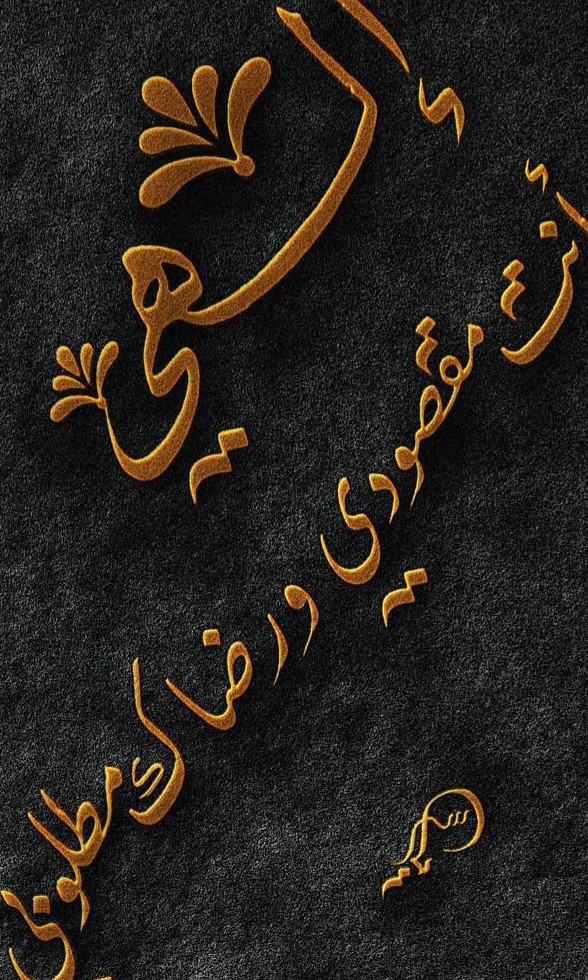 إلهي
أنت مقصودي ورضاك مطلوبي